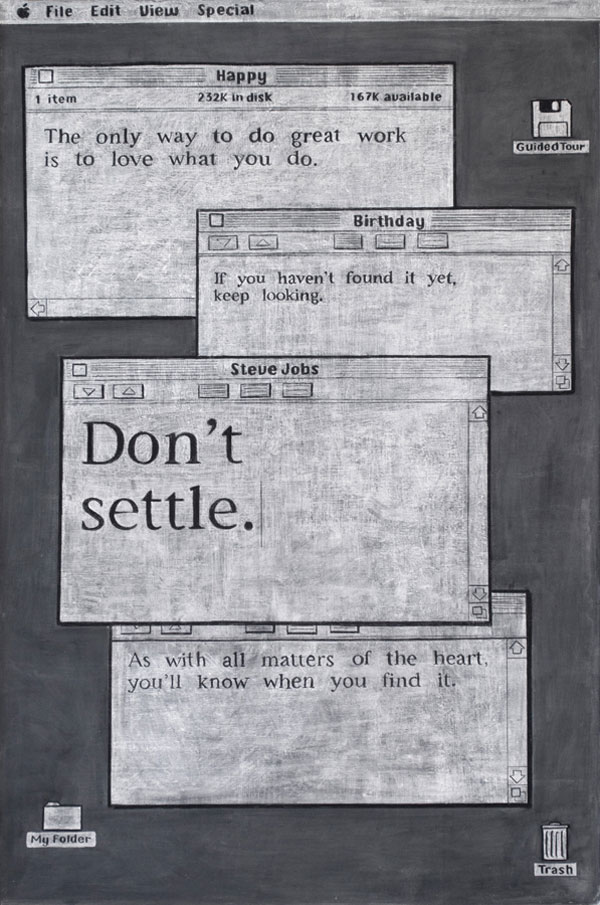 File Edit View Special
Happy
1 item 232K in disk 167K available
The only way to do great work
is to love what you do.
Guided Tour
Birthday
If you haven't found it yet,
keep looking.
Steve Jobs
Don't
settle.
As with all matters of the heart,
you'll know when you find it.
My Folder
Trash